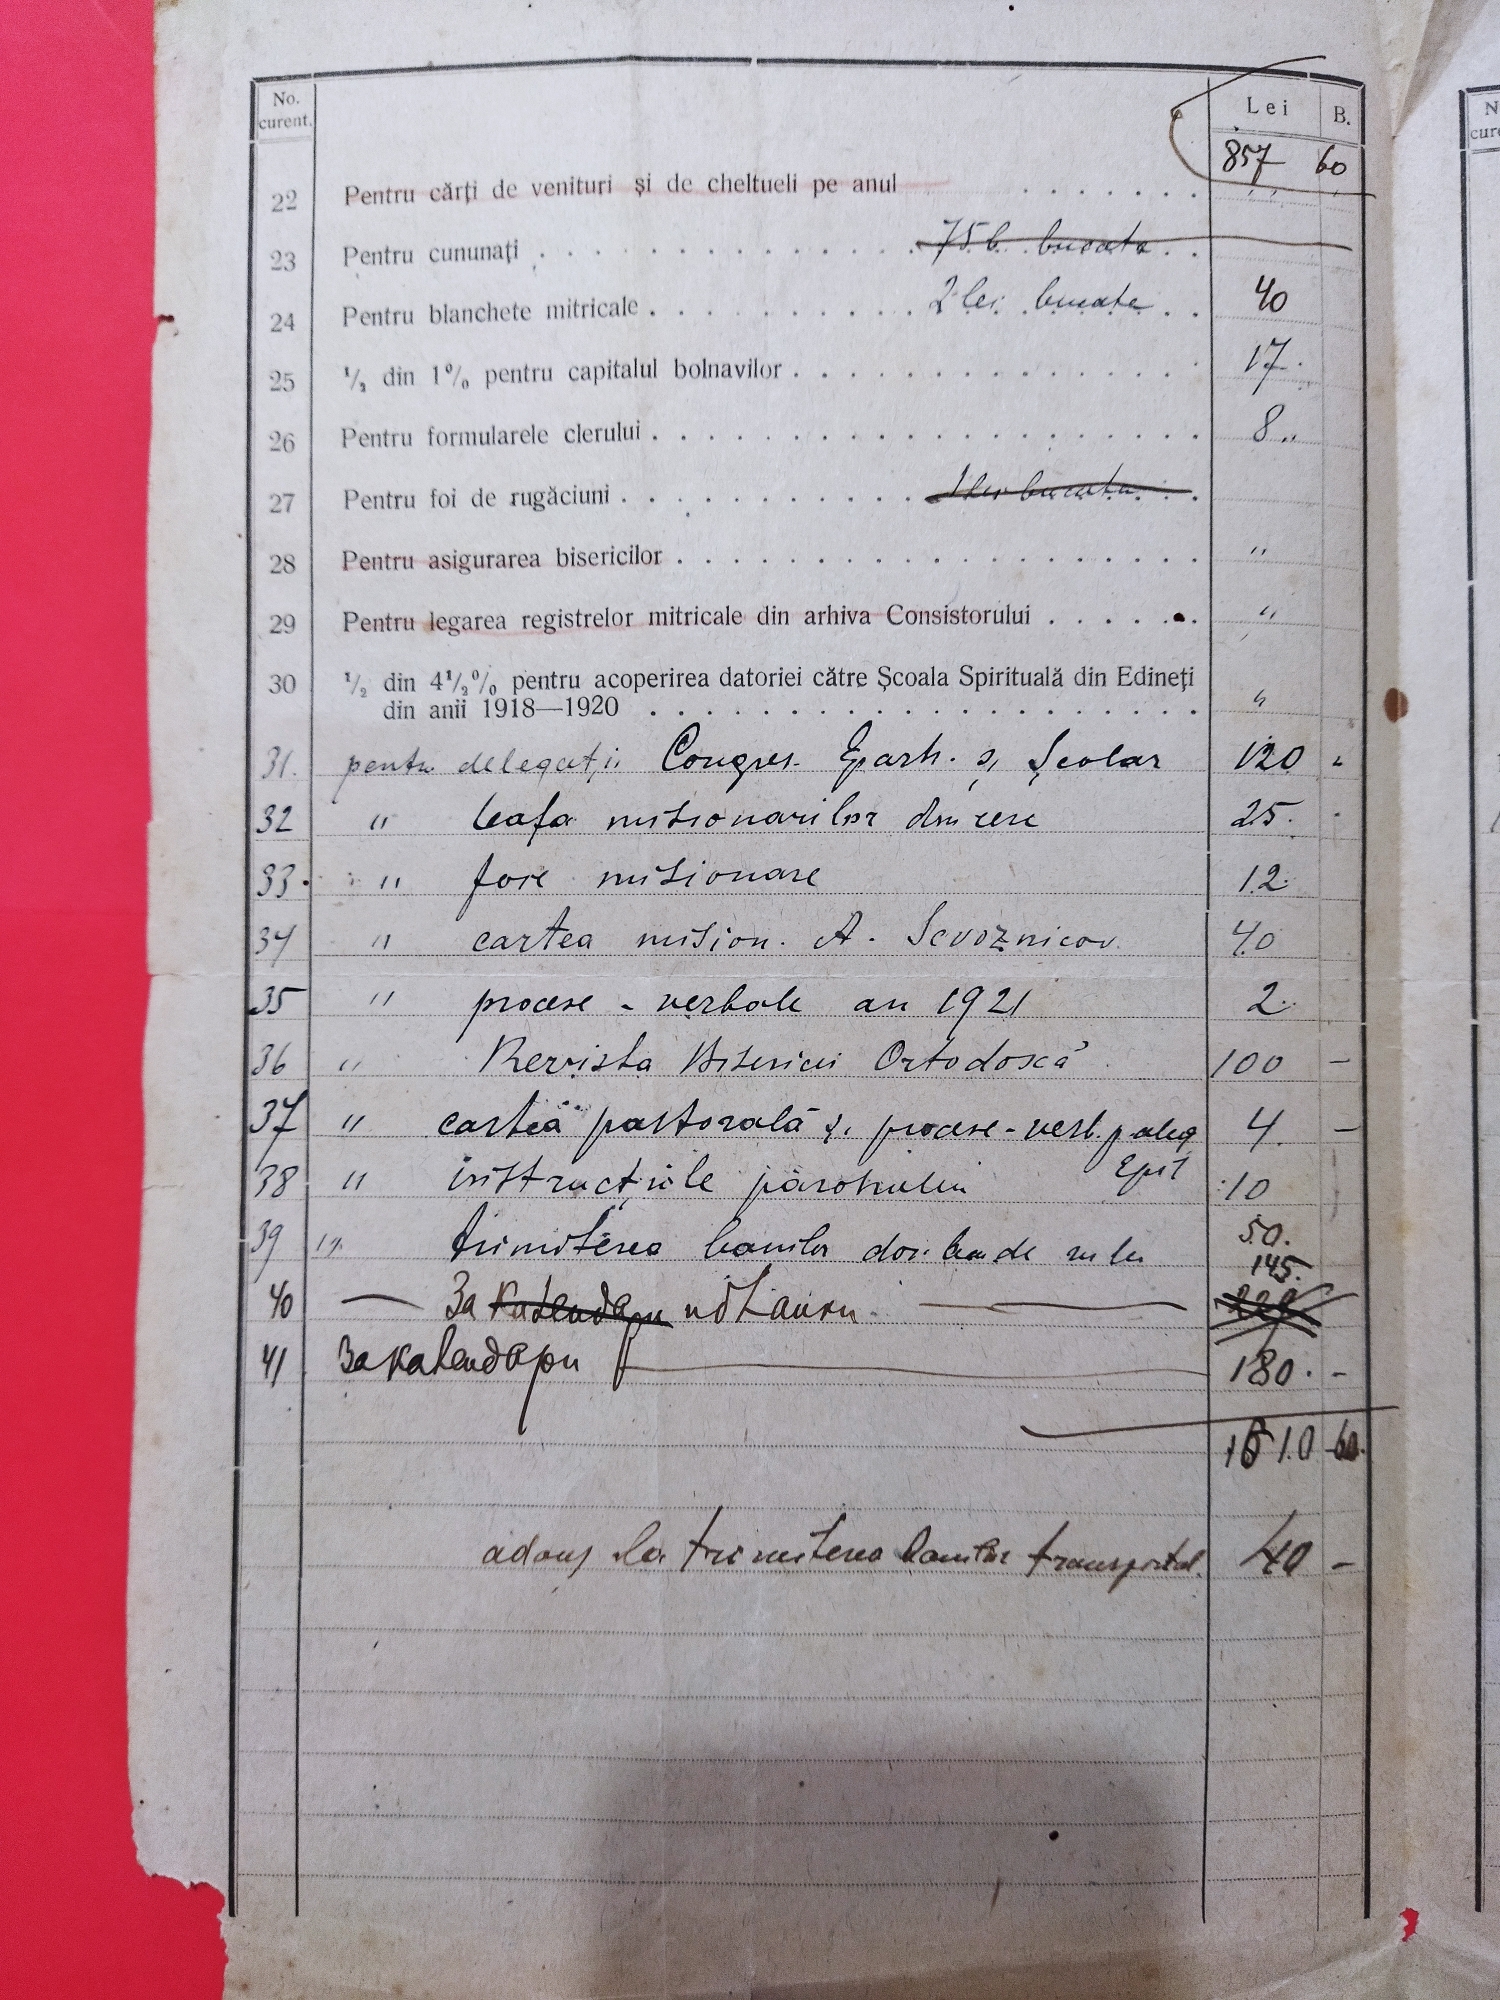 No. curent. Lei B.
857 60
22 Pentru cărți de venituri și de cheltueli pe anul . . . . . . . " "
23 Pentru cununați . . . . . . . . . . . . . 75 b. bucata . .
24 Pentru blanchete mitricale . . . . . . . . . . 2 lei bucata . . 40
25 ½ din 1% pentru capitalul bolnavilor . . . . . . . . . . . . . . 17.
26 Pentru formularele clerului . . . . . . . . . . . . . . . . . . . 8 "
27 Pentru foi de rugăciuni . . . . . . . . . . . 1 leu bucata . . .
28 Pentru asigurarea bisericilor . . . . . . . . . . . . . . . . . . "
29 Pentru legarea registrelor mitricale din arhiva Consistorului . . . . . . "
30 ½ din 4½% pentru acoperirea datoriei către Școala Spirituală din Edineți
din anii 1918—1920 . . . . . . . . . . . . . . . . . . . . "
31. pentru delegații Congres. Eparh. și Școlar 120 "
32 " leafa misionarilor 25.
33. " foie misionare 12.
34 " cartea mision. A. Scvoznicov. 40
35 " procese - verbale an 1921 2.
36 " Revista Bisericii Ortodoscă 100 —
37 " cartea pastorală și procese-verb. p. aleg 4. —
Epis
38 " instrucțiile parohului 10
39 " trimiterea banilor 50.
145.
40 — За календари — 220
41 За календари — 180. -
1610 60.
adaus la trimiterea banilor transportul. 40 —
N
cure